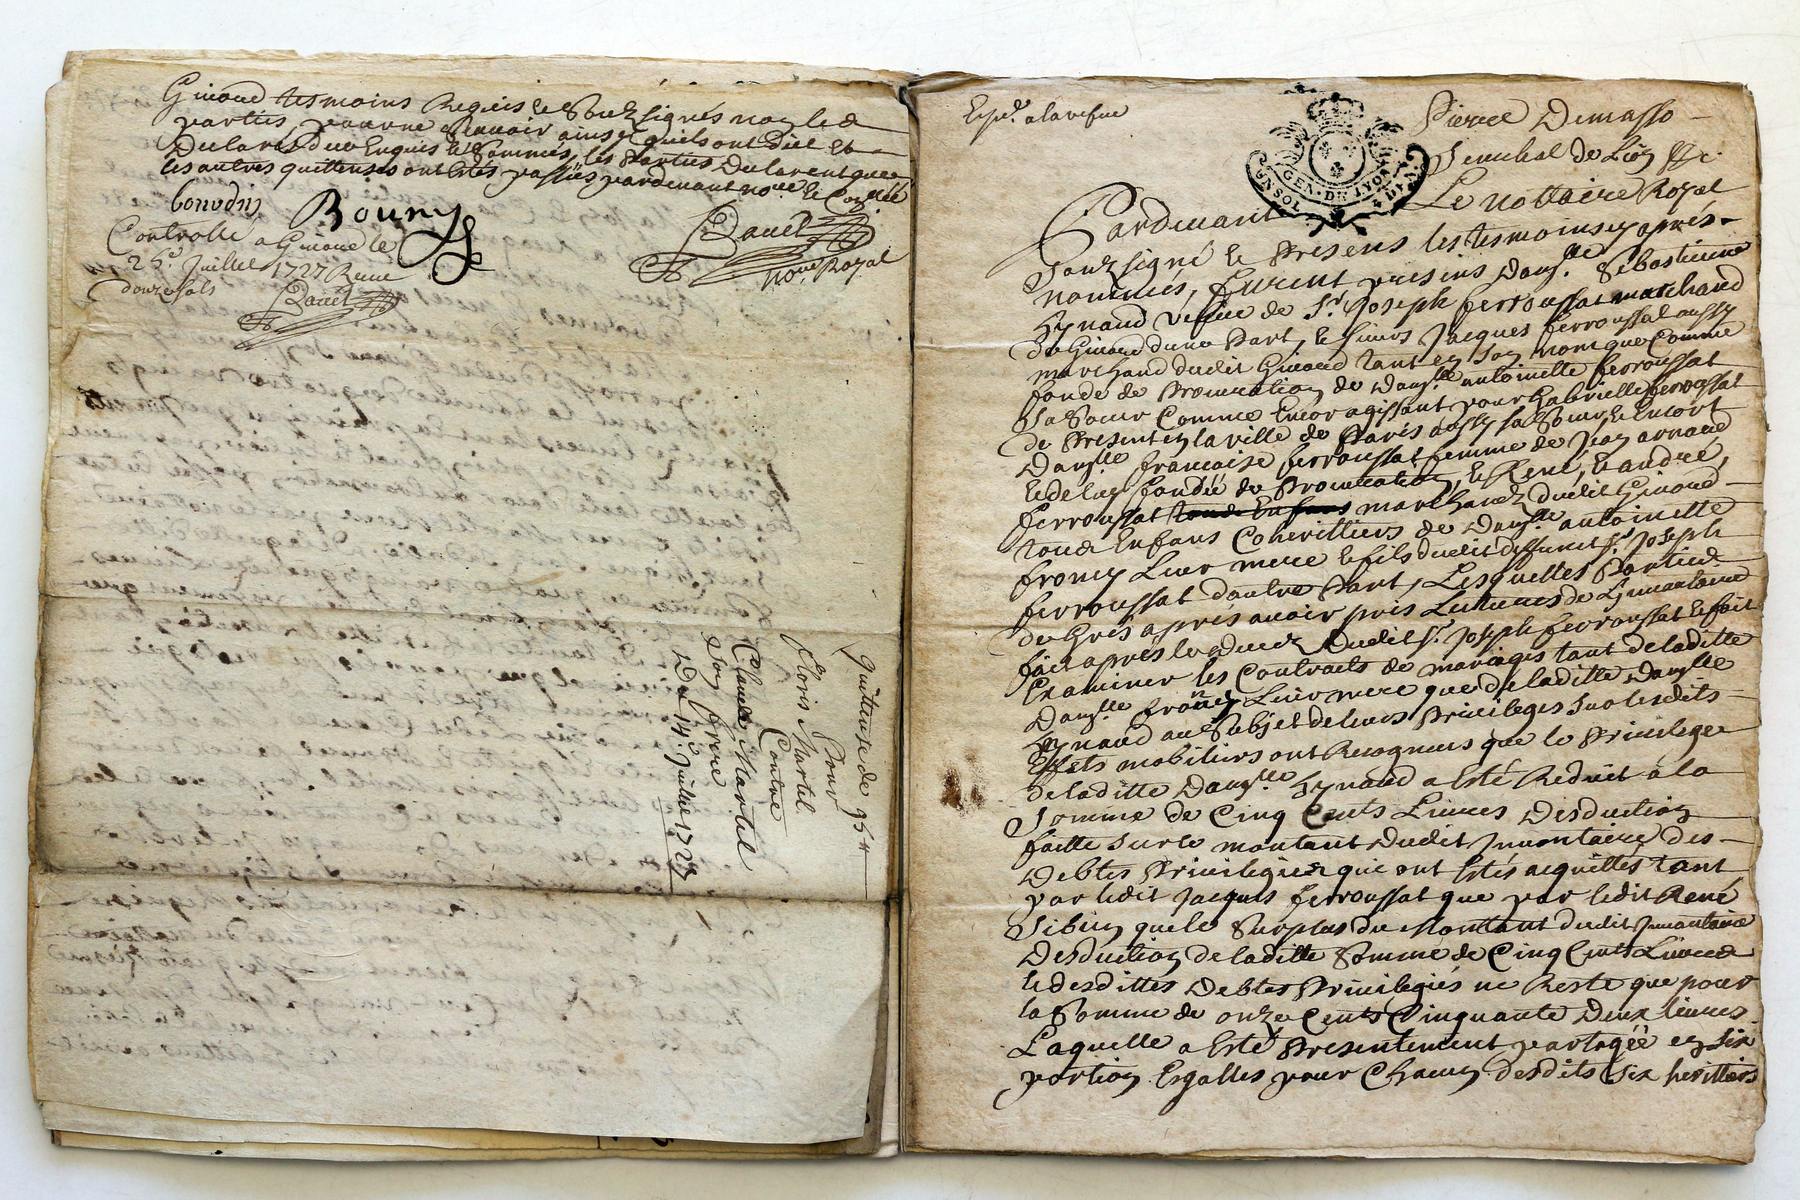 Giraud tesmoins Requis et Soubzsignés non les
parties pour ne Sçavoir ainsy quils ont dict et
declaré de ce Enquis et Sommés, les parties declarent que
les autres quittenses ont Estés passées pardevant no.re
Bourg
Davet
no.re Royal
Controllé a Giraud le
25.e Juillet 1727 Receu
douze sols
Davet
Quittense de 95 ₶
Pour
Floris Martel
Contre
Claude Martel
Son frere
Du 14.e Juillet 1727
Exp.é a la vefve
Pierre Demasso
Senechal de Lion &c.
GEN. DE LYON
UN SOL 4 DEN.
Pardevant Le nottaire Royal
Soubzsigné et Presens les tesmoins cy après
nommés, furent presens Dam.lle Sebastienne
Eynaud vefve de S.r Joseph ferroussat marchand
de Giraud dune Part, et sieurs Jacques ferroussat aussy
marchand dudit Giraud tant en son nom que Comme
fondé de Procuration de Dam.lle antoinette ferroussat
Sa Soeur Comme Encor agissant pour Gabrielle ferroussat
de Present en la ville de Paris aussy sa Soeur et Encort
Dam.lle francoise ferroussat femme de Jean arnaud
et de luy fondée de Procuration, et René, et andré,
ferroussat tous Enfans marchandz dudit Giraud
tous Enfans Coheritiers de Dam.lle antoinette
froment Leur mere et fils dudit deffunct S.r Joseph
ferroussat dautre Part, Lesquelles Parties
de Gré après avoir pris Lectures de L'jnvantaire
fait apres le deces dudit S.r Joseph ferroussat et fait
Examiner les Contracts de mariages tant de laditte
Dam.lle Leur mere que de laditte Dam.lle
Eynaud au Subjet de leurs Privileges Sur lesdits
Effets mobiliers ont Recogneus que le Privilege
de laditte Dam.lle Eynaud a Esté Reduit a la
Somme de Cinq Cents Livres Desduction
faitte Sur le montant dudit jnvantaire des
Debtes Privilegiés qui ont Estés acquittés tant
par ledit Jacques ferroussat que par ledit René
Sibien que le Surplus du Montant dudit jnvantaire
Desduction de laditte Somme de Cinq Cents Livres
et desdittes Debtes Privilegiés ne Reste que pour
la Somme de onze Cents Cinquante Deux livres
Laquelle a Esté Presentement partagée en Six
portion Esgalles pour Chacun desdits Six heritiers